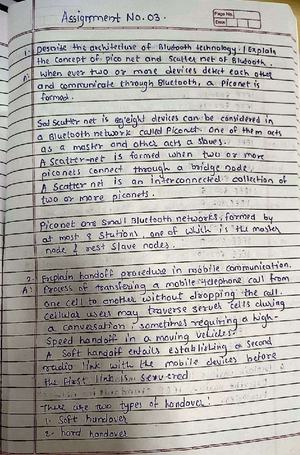 Assignment No. 03.
Page No.
Date
1. Describe the architecture of Blutooth technology. / Explain
the concept of pico net and Scatter net of Blutooth.
A: When ever two or more devices detect each other
and communicate through Bluetooth, a piconet is
formed.
Sol scatter net is eg eight devices can be considered in
a Bluetooth network called Piconet. One of them acts
as a master and other acts a slaves.
A Scatter-net is formed when two or more
piconets connect through a bridge node.
A Scatter net is an interconnected collection of
two or more piconets.
Piconet are small Bluetooth networks, formed by
at most 8 stations, one of which is the master
node & rest slave nodes.
2. Explain handoff procedure in mobile communication.
A: Process of transfering a mobile telephone call from
one cell to another without dropping the call.
Cellular users may traverse server cells during
a conversation, sometimes requiring a high-
speed handoff in a moving vehicles.
A Soft handoff entails establishing a second
radio link with the mobile devices before
the first link is servered
There are two types of handover:
1- Soft handover
2- hard handover